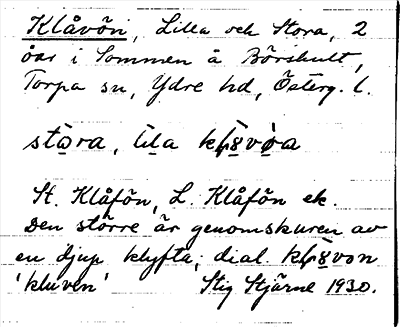 Klåvön, Lilla och Stora, 2
öar i Sommen å Börshult,
Torpa sn, Ydre hd, Österg. l.
stōra, lila
St. Klåfön, L. Klåfön ek.
Den större är genomskuren av
en djup klyfta; dial.
'kluven' Stig Stjärne 1930.